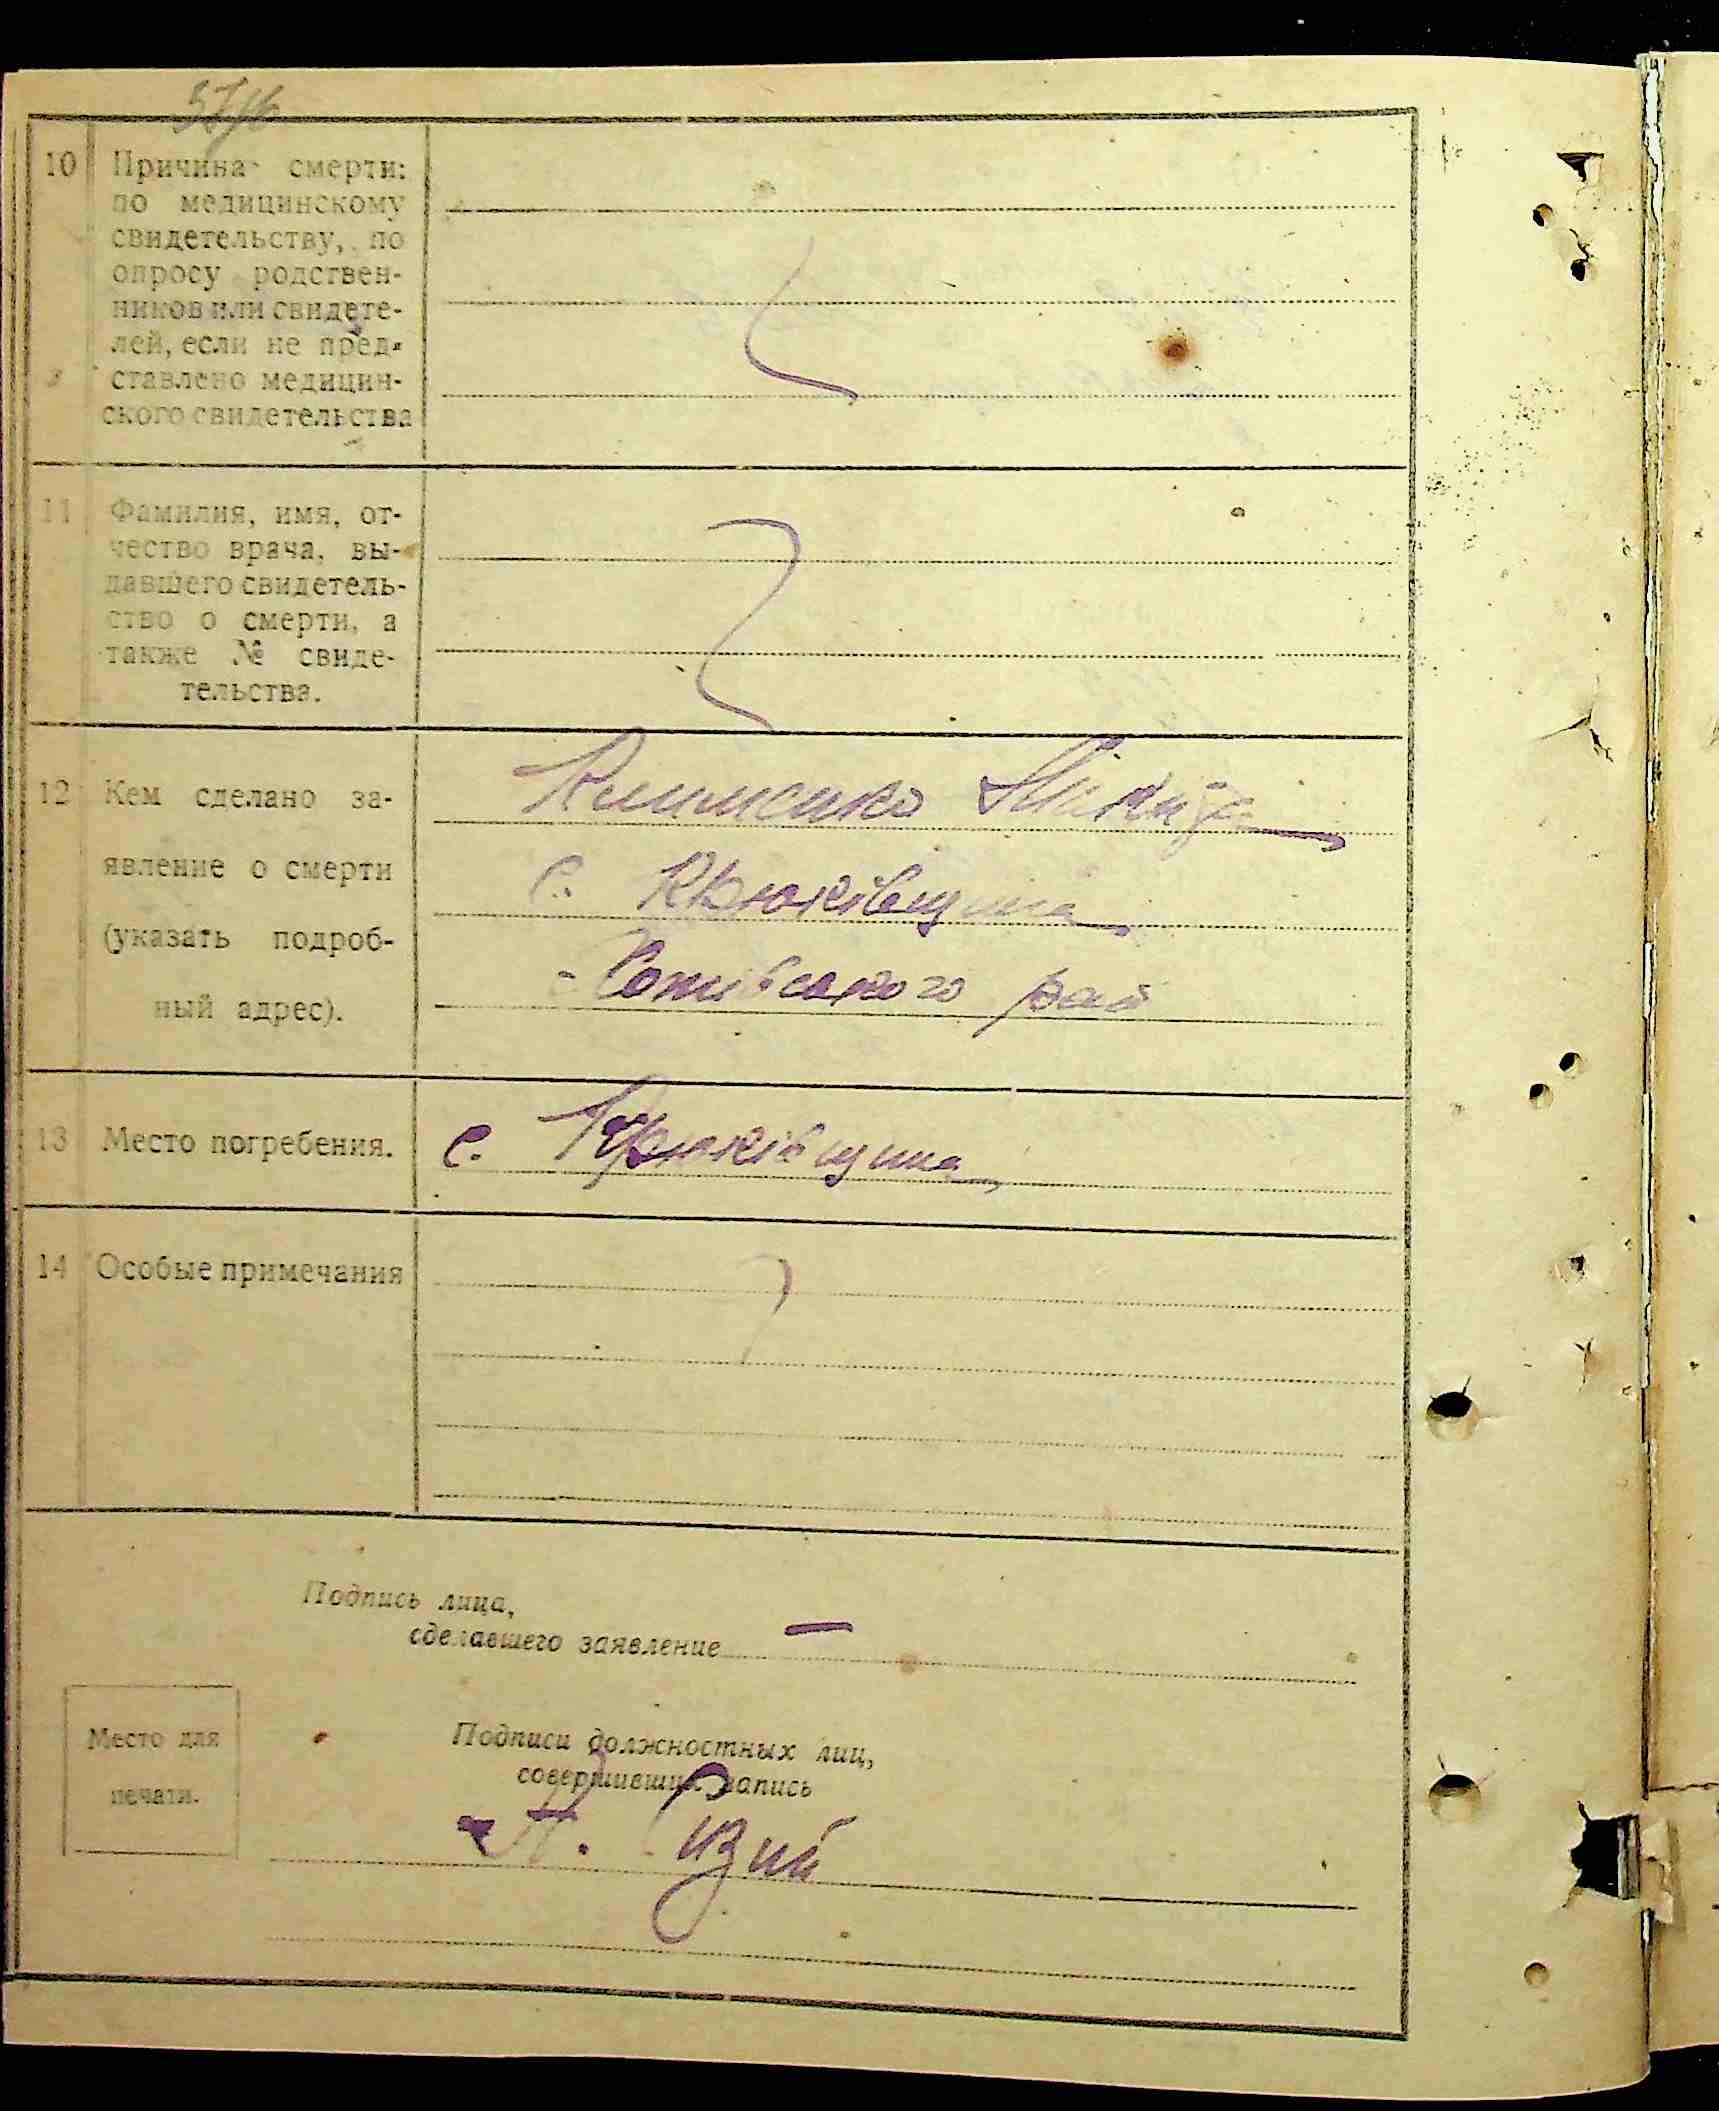 10 Причина смерти:
по медицинскому
свидетельству, по
опросу родствен-
ников или свидете-
лей, если не пред-
ставлено медицин-
ского свидетельства
11 Фамилия, имя, от-
чество врача, вы-
давшего свидетель-
ство о смерти, а
также № свиде-
тельства.
12 Кем сделано за-
явление о смерти
(указать подроб-
ный адрес).
Клименко Микита
с. Крюківщина
Хотівського рай
13 Место погребения.
с. Крюківщина
14 Особые примечания
Подпись лица,
сделавшего заявление —
Место для
печати.
Подписи должностных лиц,
совершивших запись